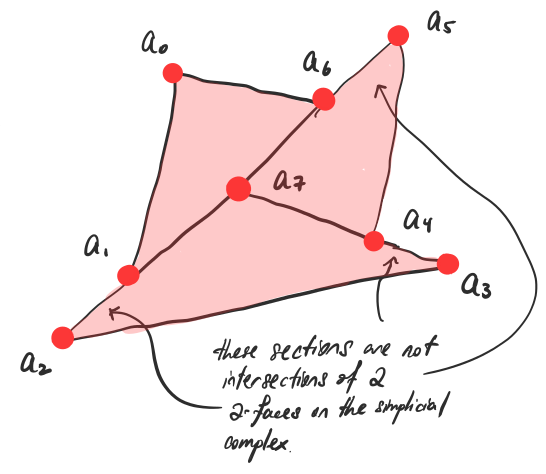 a₅
a₀
a₆
a₇
a₄
a₁
a₃
a₂
these sections are not
intersections of 2
2-faces on the simplicial
complex.